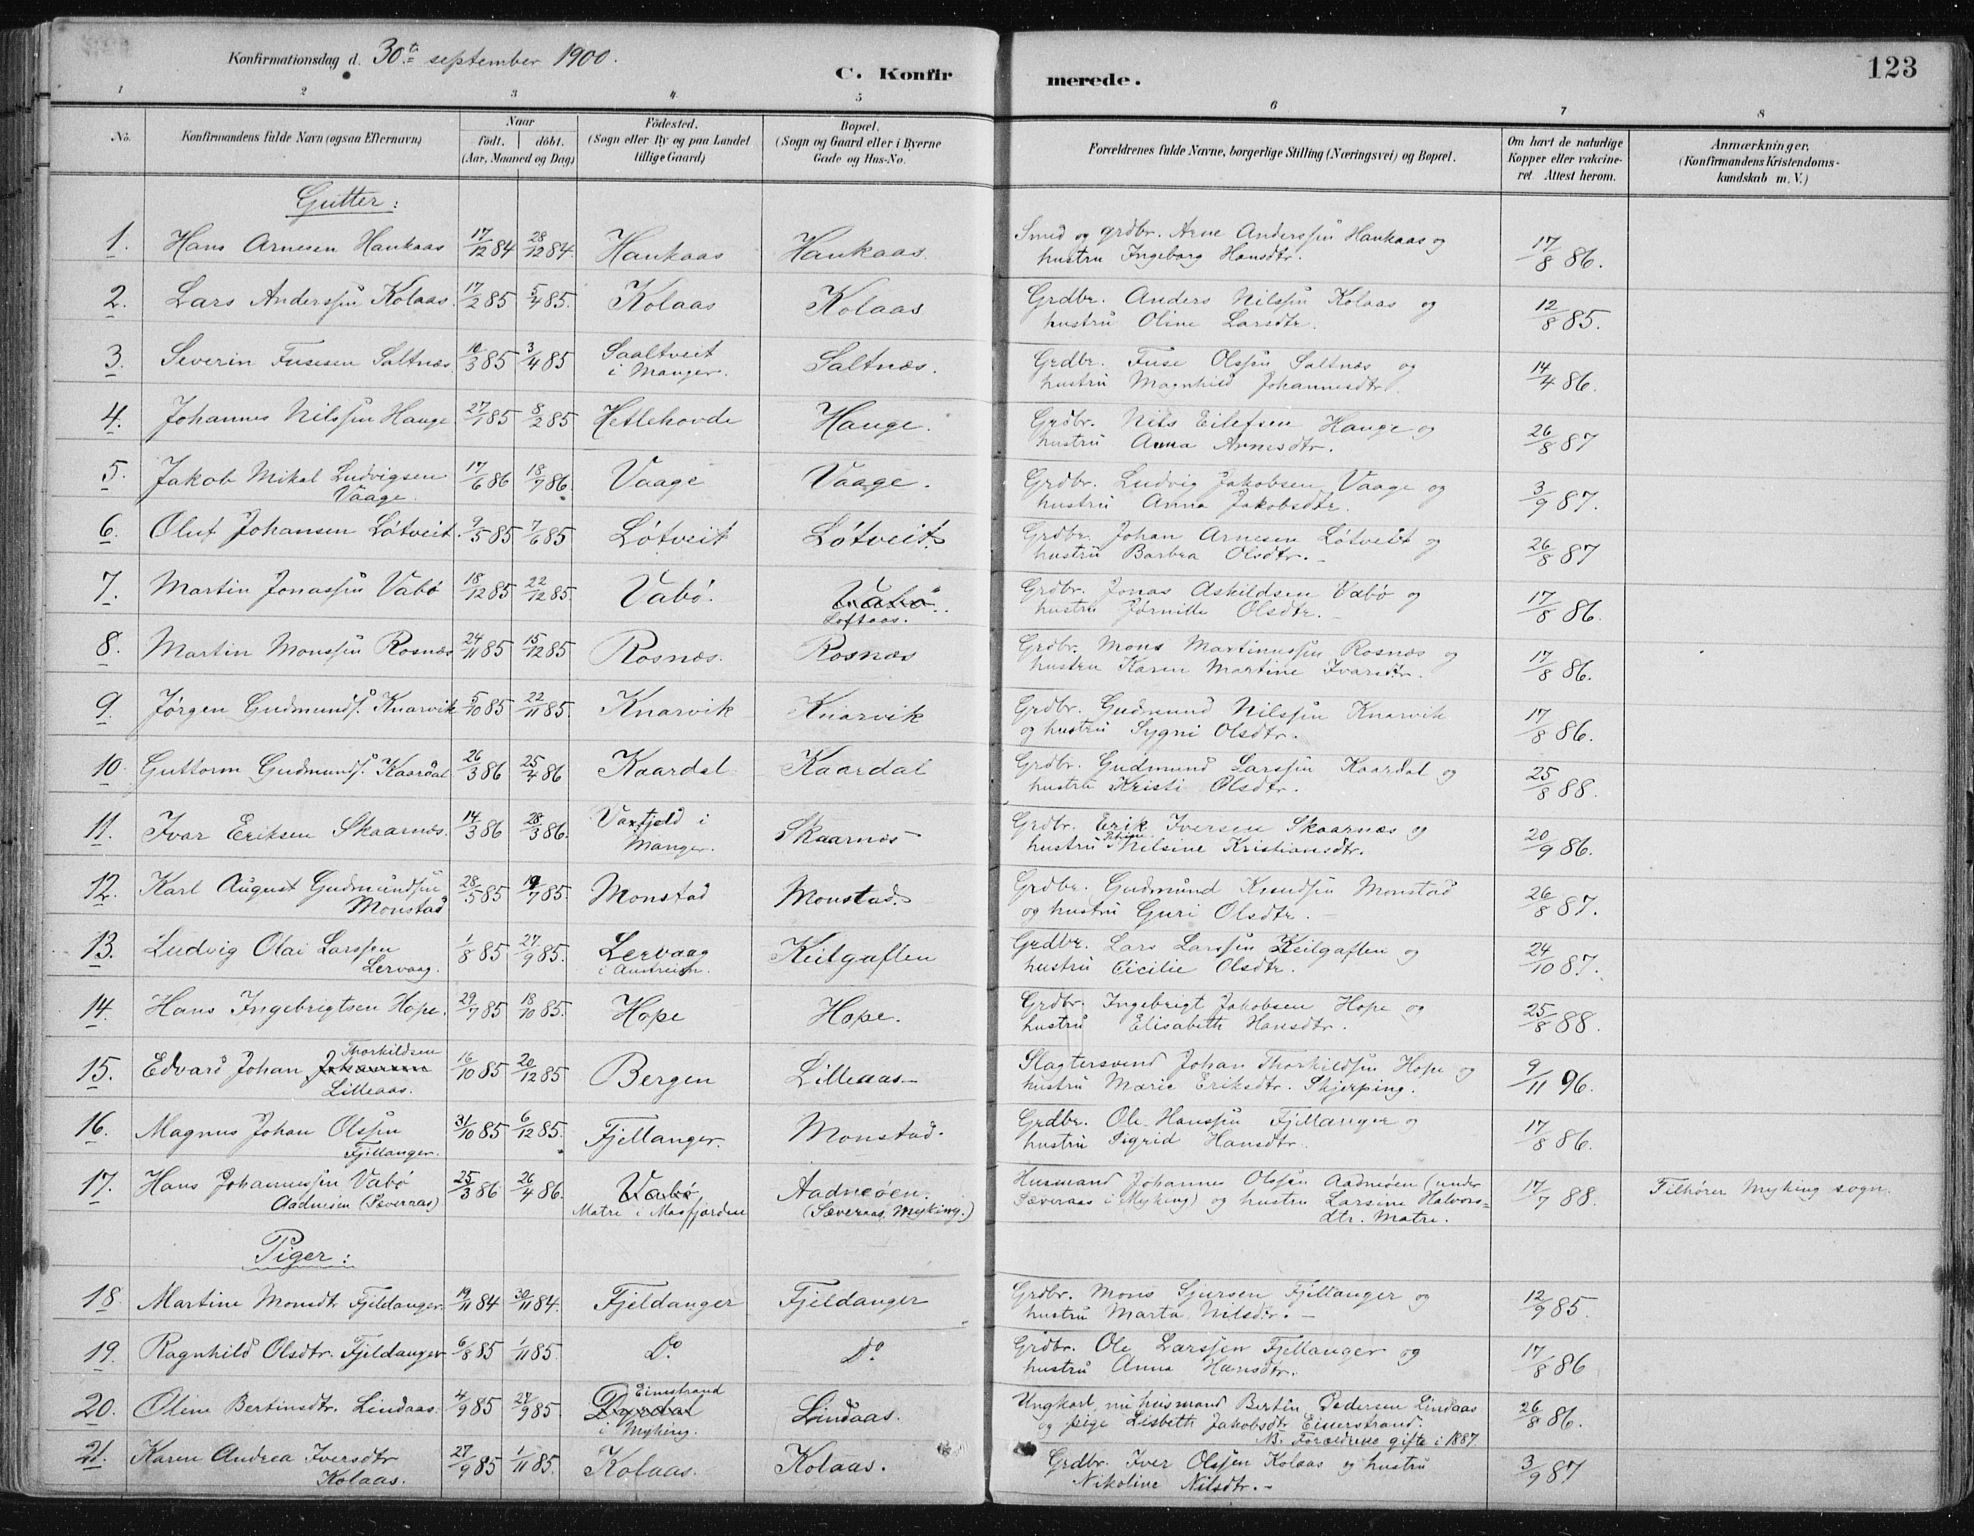 Konfirmationsdag d. 30te september 1900.
C. Konfirmerede.
123
1 2 3 4 5 6 7 8
No. Konfirmandens fulde Navn (ogsaa Efternavn) Naar født. døbt. (Aar, Maaned og Dag) Fødested. (Sogn eller By og paa Landet tillige Gaard) Bopæl. (Sogn og Gaard eller i Byerne Gade og Hus-No. Forældrenes fulde Navne, borgerlige Stilling (Næringsvei) og Bopæl. Om havt de naturlige Kopper eller vakcineret. Attest herom. Anmærkninger. (Konfirmandens Kristendomskundskab m. V.)
Gutter:
1. Hans Arnesen Haukaas 17/12 84 28/12 84. Haukaas Haukaas. Smed og grdbr. Arne Anderssen Haukaas og
hustru Ingeborg Hansdtr. 17/8 86.
2. Lars Anderssen Kolaas. 17/2 85 5/4 85. Kolaas Kolaas Grdbr. Anders Nilssen Kolaas og
hustru Oline Larsdtr. 12/8 85.
3. Severin Fusesen Saltnæs. /3 85 3/4 85 Saaltveit Saltnæs. Grdbr. Fuse Olssen Saltnæs og
i Manger. hustru Magnhild Johannesdtr. 14/4 86.
4. Johannes Nilssen Hauge 27/1 85 8/2 85 Hetlehovde Hauge. Grdbr. Nils Eilefsen Hauge og
hustru Anna Arnesdtr. 26/8 87
5. Jakob Mikal Ludvigsen 17/6 86 18/7 86. Vaage Vaage. Grdbr. Ludvig Jakobsen Vaage og
Vaage. hustru Anna Jakobsdtr. 3/9 87.
6. Oluf Johansen Løtveit. 9/5 85 7/6 85 Løtveit Løtveit. Grdbr. Johan Arnesen Løtveit og
hustru Barbra Olsdtr. 26/8 87
7. Martin Jonassen Vabø 18/12 85 22/12 85. Vabø. Vabø. Grdbr. Jonas Askildsen Vabø og
Loftaas. hustru Jørnille Olsdtr. 17/8 86.
8. Martin Monssen Rosnæs 24/11 85 15/12 85 Rosnæs. Rosnæs Grdbr. Mons Martinussen Rosnæs og
hustru Karen Martine Ivarsdtr. 17/8 86.
9. Jørgen Gudmunds. Knarvik 5/10 85 22/11 85. Knarvik Knarvik Grdbr. Gudmund Nilssen Knarvik
og hustru Sygni Olsdtr. 17/8 86.
10. Guttorm Gudmunds. Kaardal 26/3 86 25/4 86 Kaardal Kaardal Grdbr. Gudmund Larssen Kaardal og
hustru Kristi Olsdtr. 25/8 88.
11. Ivar Eriksen Skaarnæs. 14/3 86 28/3 86. Vaxfjeld i Skaarnæs Grdbr. Erik Iversen Skaarnæs og
Manger. hustru Nilsine Kristiansdtr. 20/9 86.
12. Karl August Gudmundsen 28/5 85 19/7 85. Monstad Monstad. Grdbr. Gudmund Knudsen Monstad
Monstad og hustru Guri Olsdtr. 26/8 87.
13. Ludvig Olai Larssen 1/8 85 27/9 85. Lervaag Keilgaflen Grdbr. Lars Larssen Keilgaflen og
Lervaag. i Austrheim. hustru Cicilie Olsdtr. 24/10 87.
14. Hans Ingebrigtsen Hope. 29/7 85 18/10 85. Hope Hope. Grdbr. Ingebrigt Jakobsen Hope og
hustru Elisabeth Hansdtr. 25/8 88.
Thorkildsen
15. Edvard Johan Johansen 16/10 85 20/12 85 Bergen Lilleaas. Slagtersvend Johan Thorkildsen Hope og
Lilleaas. hustru Marie Eriksdtr. Skjerping. 9/11 96.
16. Magnus Johan Olssen 31/10 85 6/12 85. Fjellanger. Monstad. Grdbr. Ole Hanssen Fjellanger og
Fjellanger. hustru Sigrid Hansdtr. 17/8 86.
17. Hans Johannessen Vabø 25/3 86 26/4 86. Vabø Aadneøen. Husmand Johannes Olssen Aadneøen (under
Aadneøen (Sæveraas) Matre i Masfjorden (Sæveraas, Myking.) Sæveraas i Myking) og hustru Larsine Halvors-
dtr. Matre. 17/7 88 Tilhører Myking sogn.
Piger:
18 Martine Monsdtr Fjeldanger. 19/11 84 30/11 84. Fjeldanger Fjeldanger Grdbr. Mons Sjursen Fjellanger og
hustru Marta Nilsdtr. 12/9 85.
19. Ragnhild Olsdtr. Fjeldanger 6/8 85 1/11 85. Do Do. Grdbr. Ole Larssen Fjellanger og
hustru Anna Hansdtr. 17/8 86
Einestrand
20. Oline Bertinsdtr. Lindaas. 4/9 85 27/9 85. Dyrdal Lindaas. Ungkarl, nu husmand Bertin Pedersen Lindaas
i Myking. og pige Lisbeth Jakobsdtr Einerstrand. 26/8 86.
NB. Forældrene gifte i 1887.
21. Karen Andrea Iversdtr 27/9 85 1/11 85. Kolaas. Kolaas. Grdbr. Iver Olssen Kolaas og hustru
Kolaas. Nikoline Nilsdtr. 3/9 87